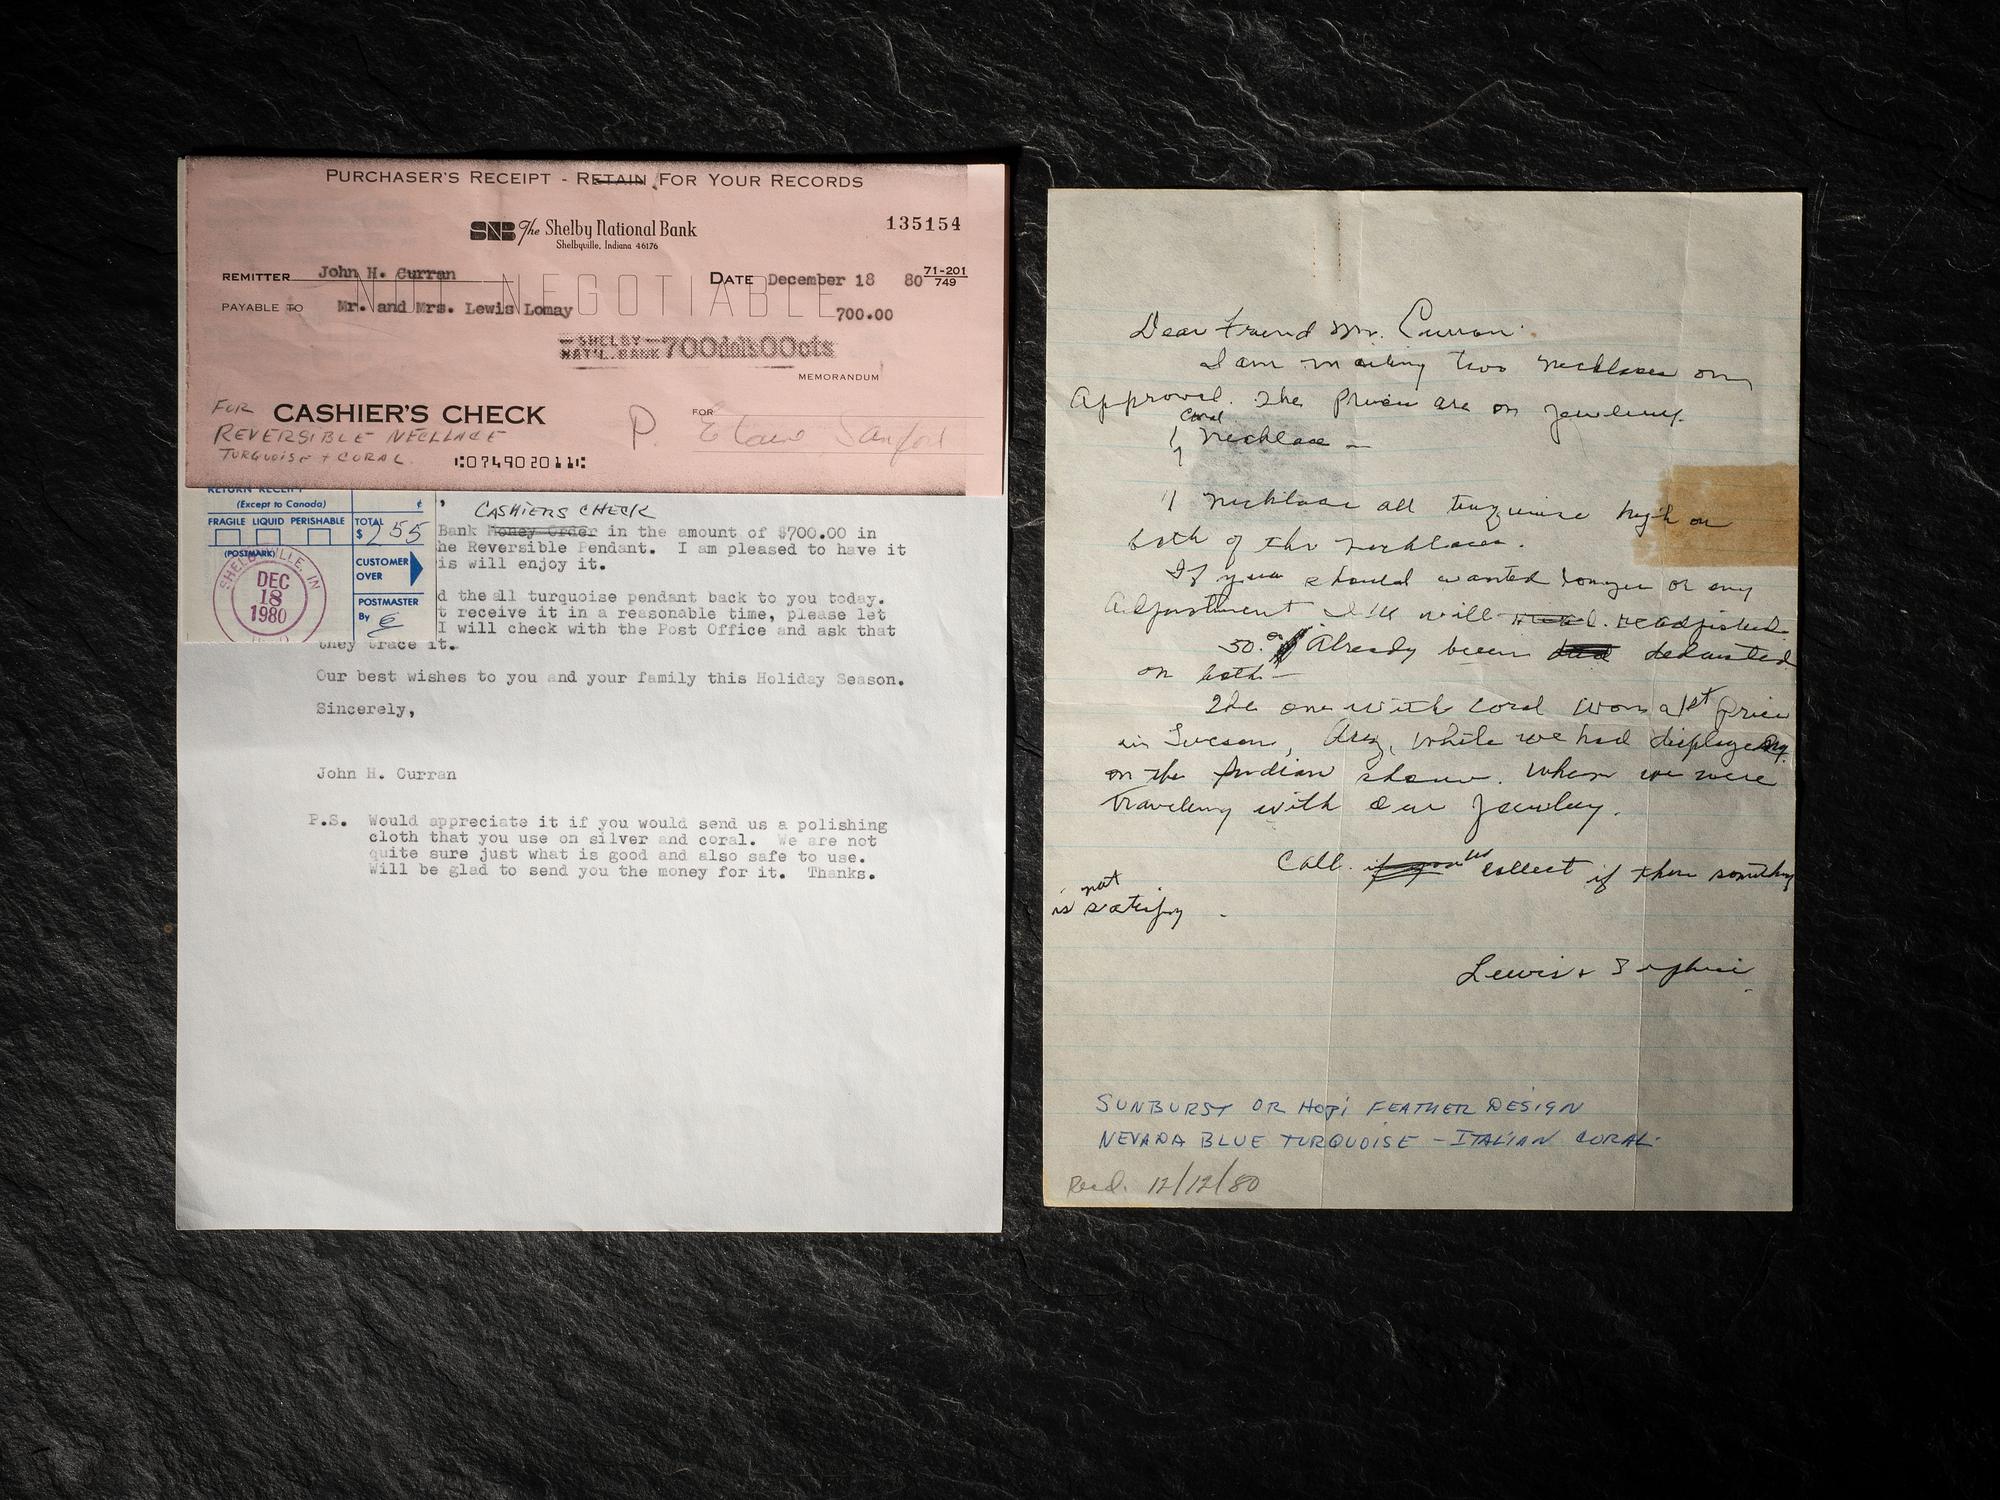 PURCHASER'S RECEIPT - RETAIN FOR YOUR RECORDS
SNB The Shelby National Bank
Shelbyville, Indiana 46176
135154
REMITTER John H. Curran
DATE December 18 80 71-201
749
NOT NEGOTIABLE
PAYABLE TO Mr. and Mrs. Lewis Lomay 700.00
SHELBY
NAT'L. BANK 700dols00cts
MEMORANDUM
FOR CASHIER'S CHECK
P.
FOR
REVERSIBLE NECLLACE
TURQUOISE + CORAL
⑆074902011⑆
RETURN RECEIPT
(Except to Canada)
¢
FRAGILE LIQUID PERISHABLE
TOTAL
$ 2 55
(POSTMARK)
SHELBYVILLE, IN
DEC
18
1980
CUSTOMER
OVER
POSTMASTER
By
,
CASHIERS CHECK
Bank Money Order in the amount of $700.00 in
he Reversible Pendant. I am pleased to have it
is will enjoy it.
d the all turquoise pendant back to you today.
t receive it in a reasonable time, please let
I will check with the Post Office and ask that
they trace it.
Our best wishes to you and your family this Holiday Season.
Sincerely,
John H. Curran
P.S. Would appreciate it if you would send us a polishing
cloth that you use on silver and coral. We are not
quite sure just what is good and also safe to use.
Will be glad to send you the money for it. Thanks.
Dear Friend Mr. Curran:
I am mailing two necklaces on
Approval. The Prices are on Jewelery.
Coral
1 necklace —
1 necklace all turquoise high on
both of the necklaces.
If you should wanted longer or any
Adjustment I'll will readjusted.
50.00 Already been deducted
on both —
The one with coral won a 1st price
in Tucson, Ariz, while we had displayed
on the Indian show. When we were
traveling with our Jewelry.
Call collect if there something
not
is satisfy.
Lewis + Sophie
SUNBURST OR HOPI FEATHER DESIGN
NEVADA BLUE TURQUOISE - ITALIAN CORAL
Recd. 12/12/80